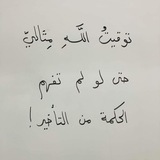 توقيتُ اللَّهِ مِثاليّ
حتى لو لم تفهم
الحكمة من التأخير!